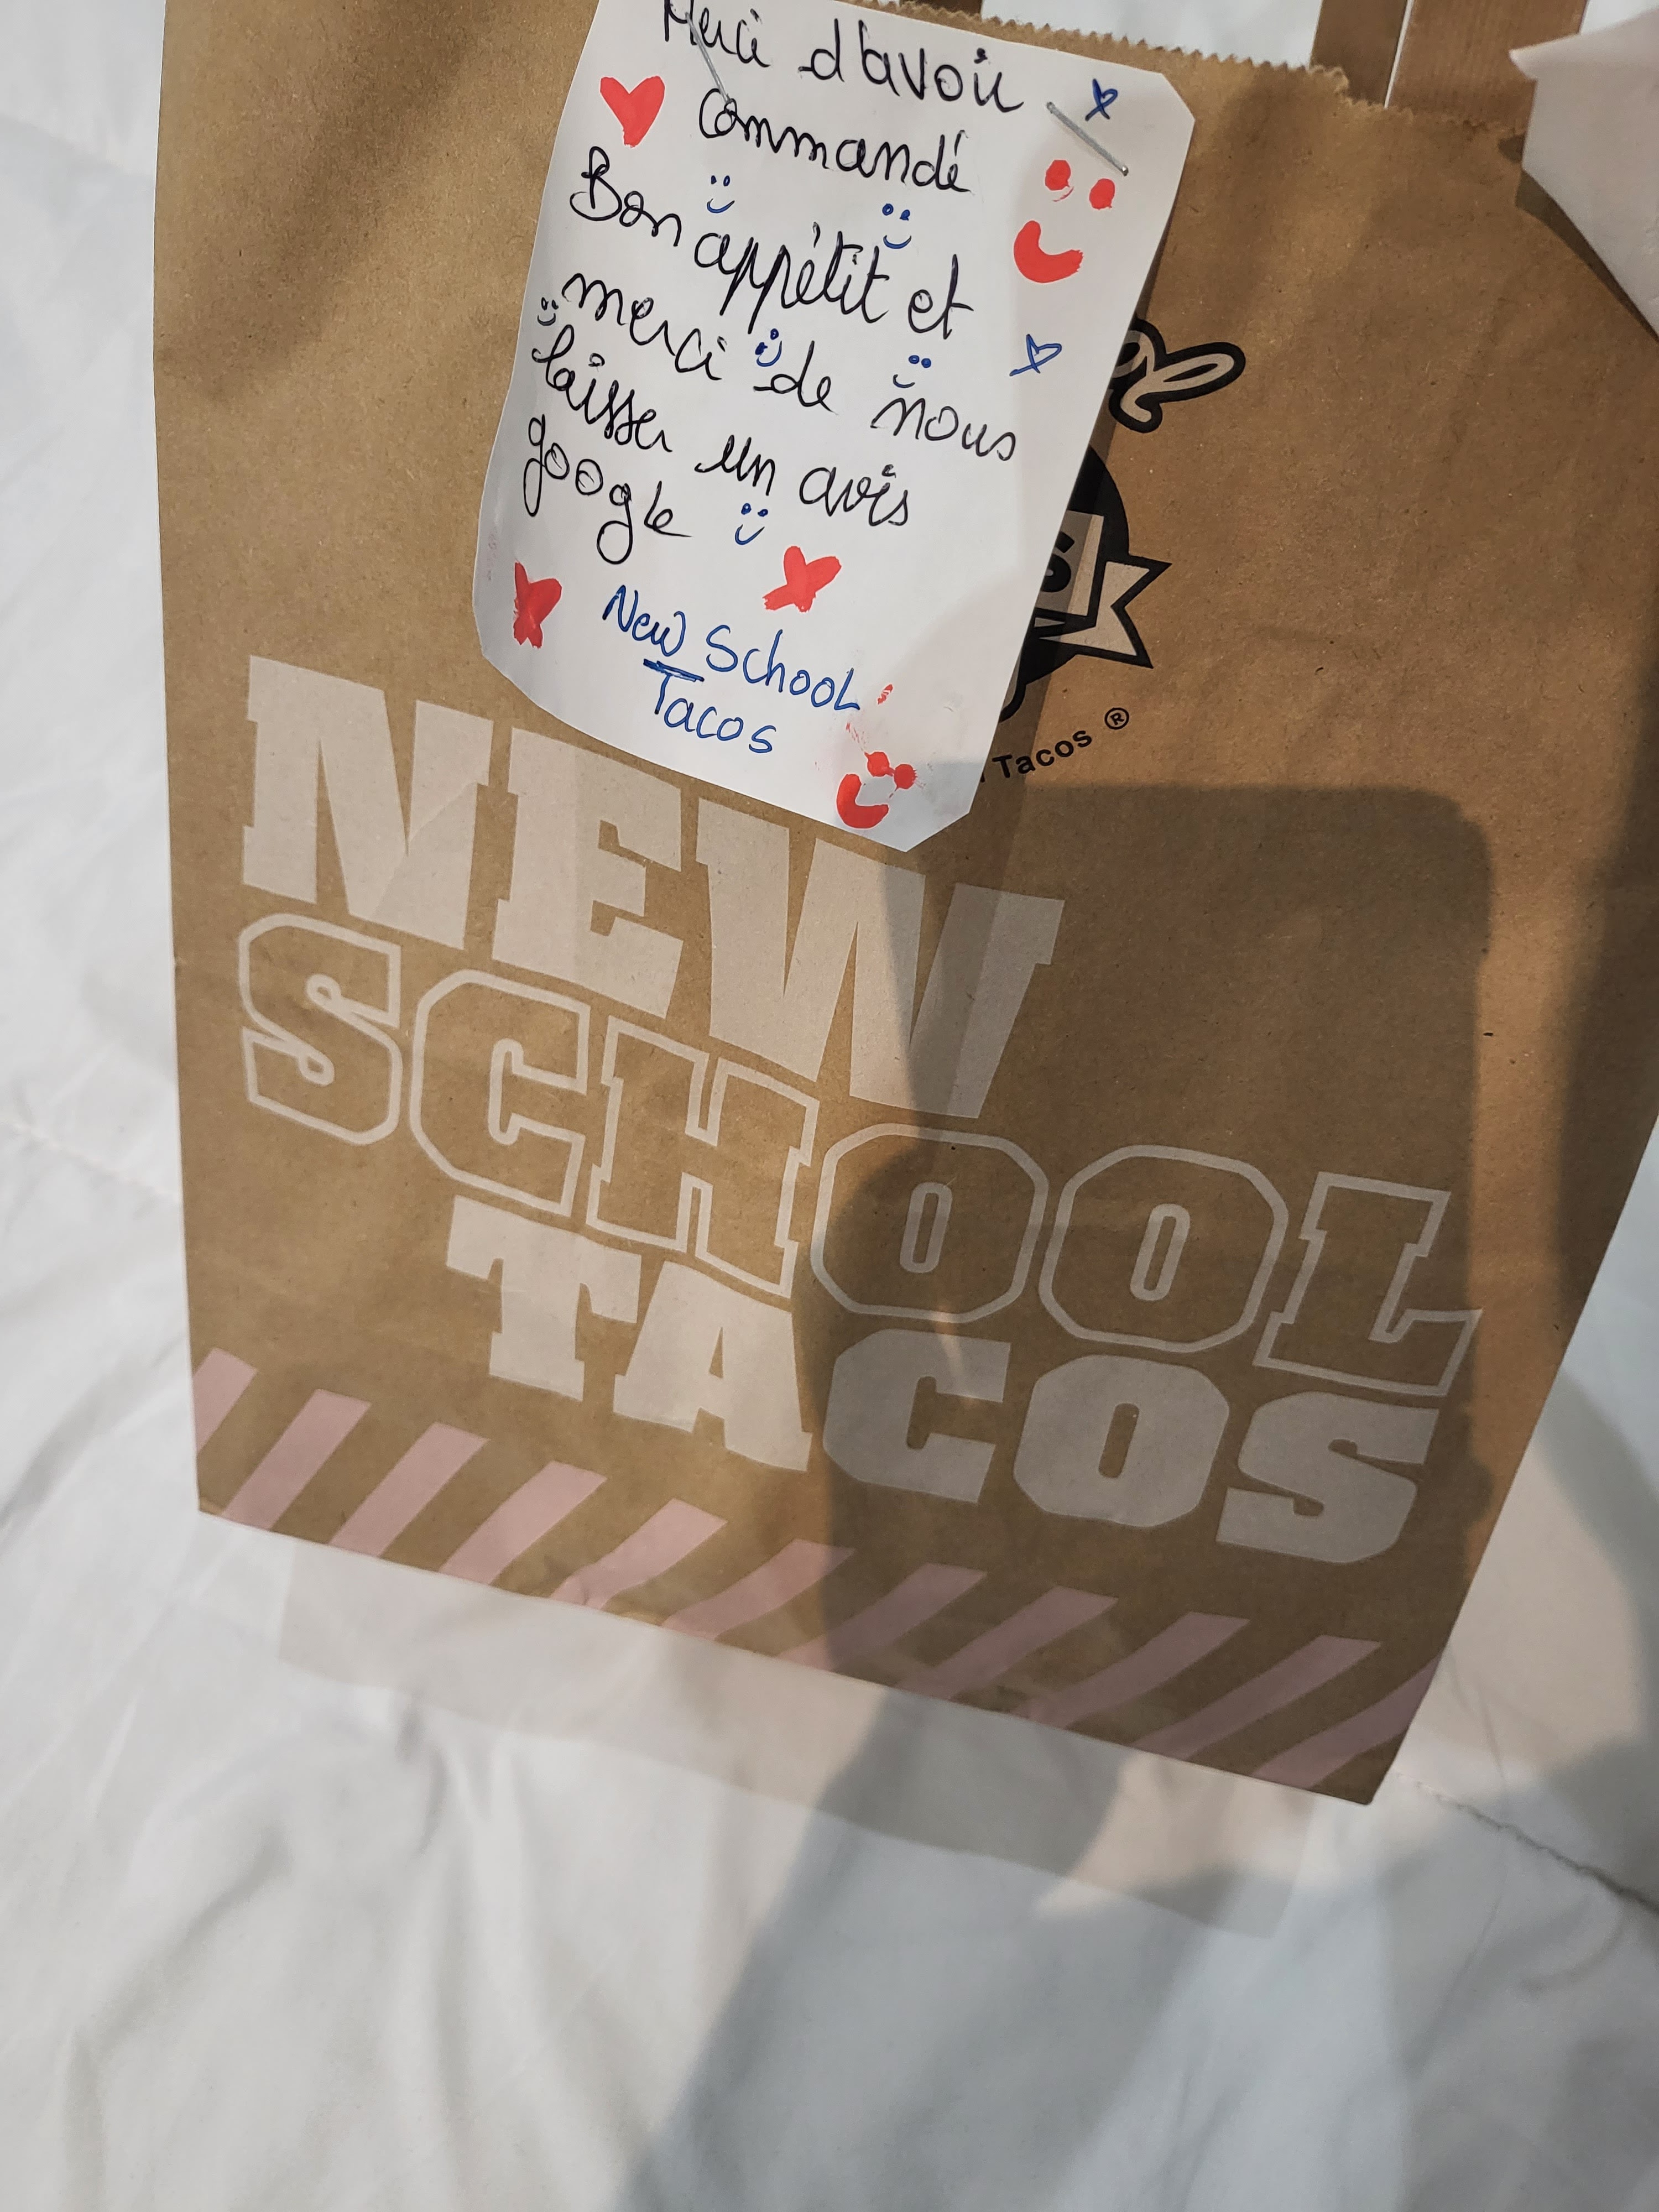 Merci d'avoir
commandé
Bon appétit et
merci de nous
laisser un avis
google
New School
Tacos
Tacos ®
NEW
SCHOOL
TACOS